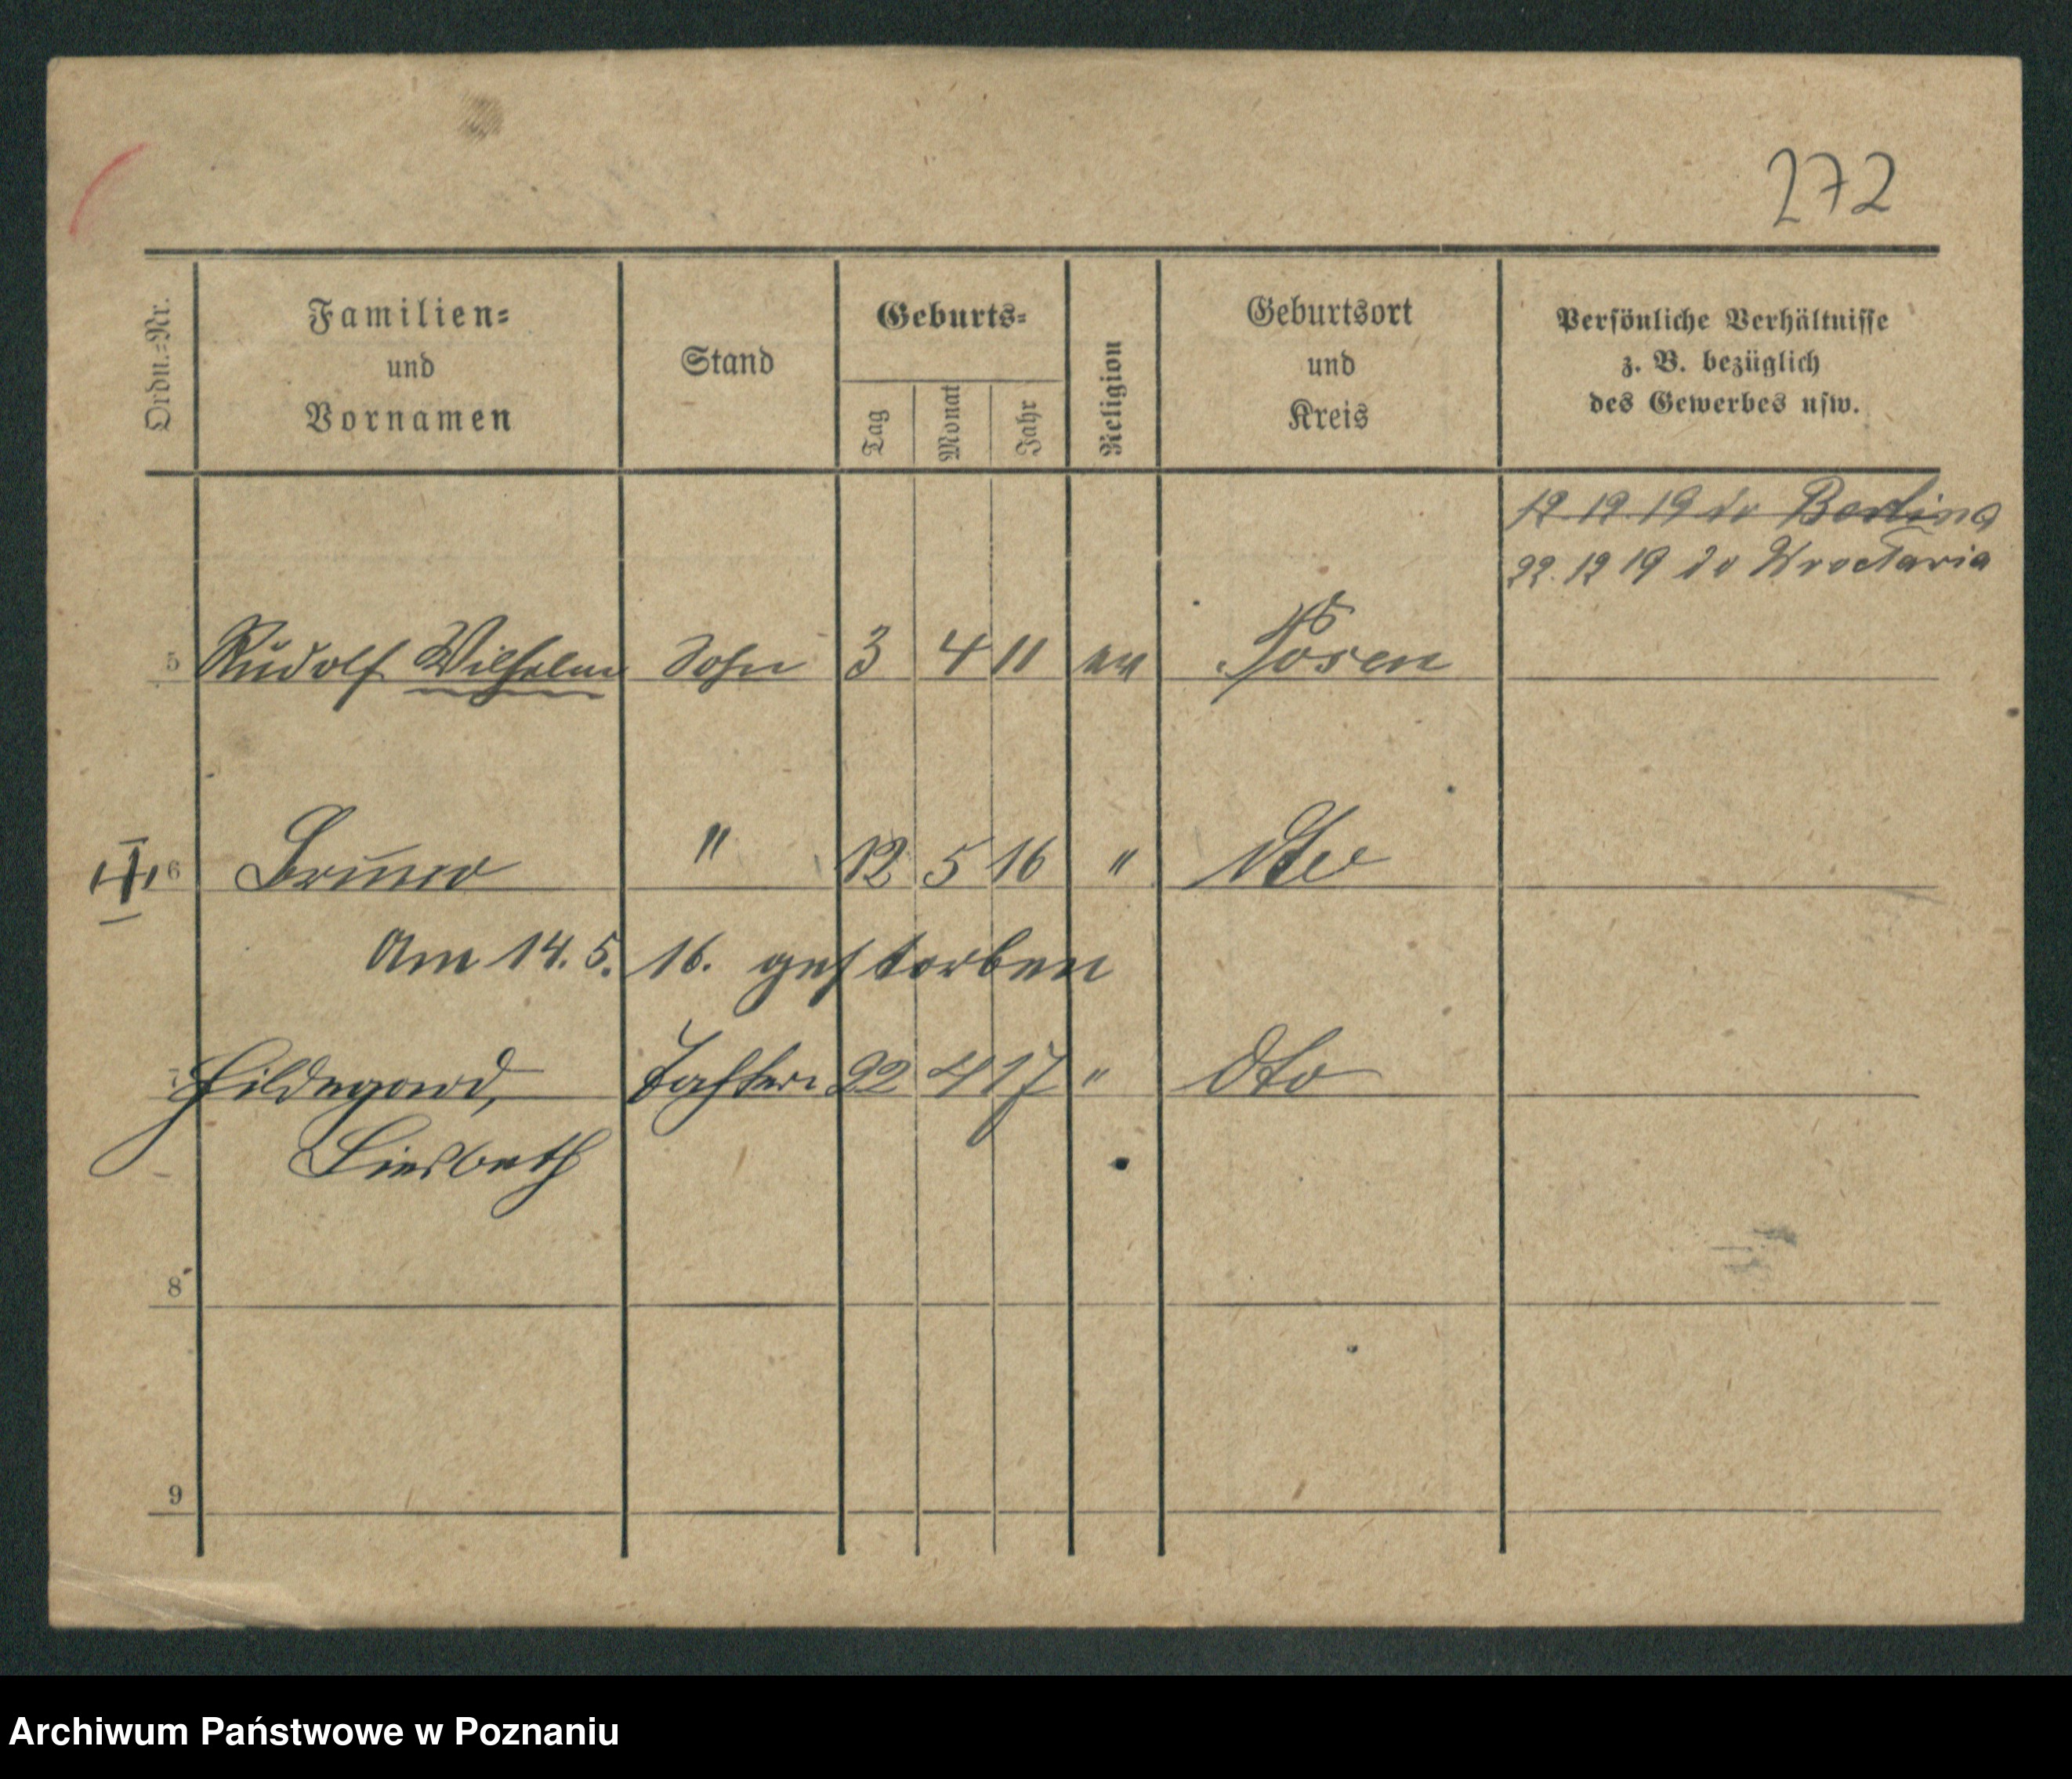 272
Ordn.-Nr.
Familien-
und
Vornamen
Stand
Geburts-
Tag
Monat
Jahr
Religion
Geburtsort
und
Kreis
Persönliche Verhältnisse
z. B. bezüglich
des Gewerbes usw.
19 12 19 do Berlina
22. 12 19 do Wrocławia
5 Rudolf Wilhelm Sohn 3 4 11 ev Posen
6 Bruno " 12 5 16 " dto
Am 14. 5. 16. gestorben
7 Hildegard, Tochter 22 4 17 " dto
Liesbeth
8
9
Archiwum Państwowe w Poznaniu